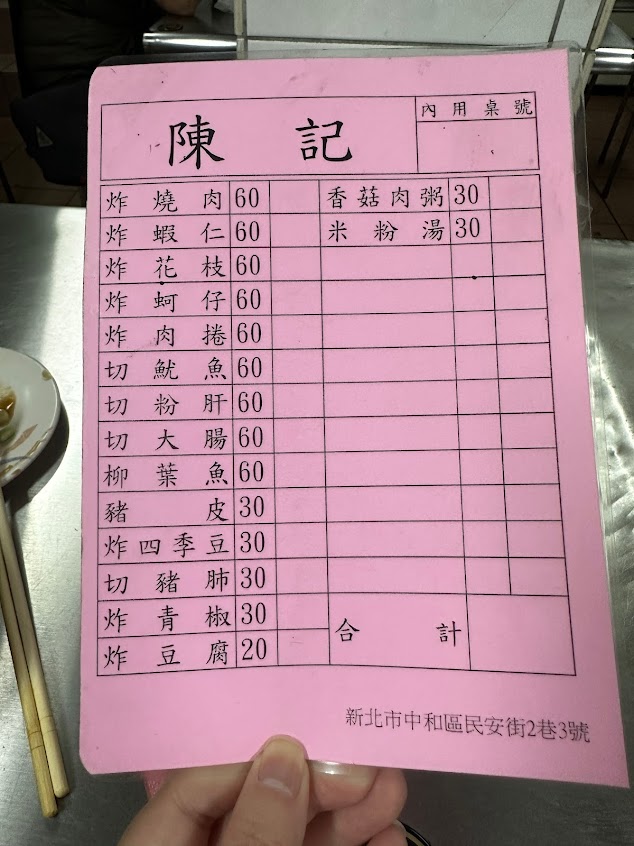 陳記
內用桌號
炸燒肉 60
炸蝦仁 60
炸花枝 60
炸蚵仔 60
炸肉捲 60
切魷魚 60
切粉肝 60
切大腸 60
柳葉魚 60
豬皮 30
炸四季豆 30
切豬肺 30
炸青椒 30
炸豆腐 20
香菇肉粥 30
米粉湯 30
合計
新北市中和區民安街2巷3號